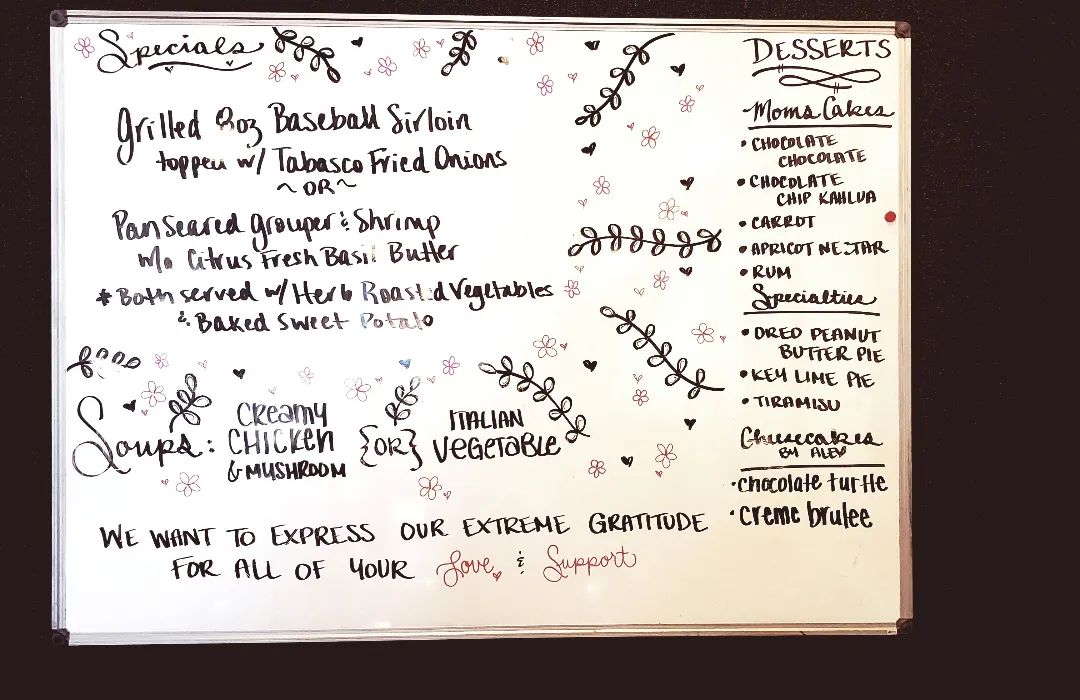 Specials
Grilled 8oz Baseball Sirloin
topped w/ Tabasco Fried Onions
~ OR ~
Pan Seared Grouper & Shrimp
w/ Citrus Fresh Basil Butter
* Both served w/ Herb Roasted Vegetables
& Baked Sweet Potato
Soups:
Creamy
Chicken
& Mushroom
{OR}
Italian
Vegetable
WE WANT TO EXPRESS OUR EXTREME GRATITUDE
FOR ALL OF YOUR Love & Support
DESSERTS
Moms Cakes
• CHOCOLATE
CHOCOLATE
• CHOCOLATE
CHIP KAHLUA
• CARROT
• APRICOT NECTAR
• RUM
Specialties
• OREO PEANUT
BUTTER PIE
• KEY LIME PIE
• TIRAMISU
Cheesecakes
BY
• chocolate turtle
• creme brulee